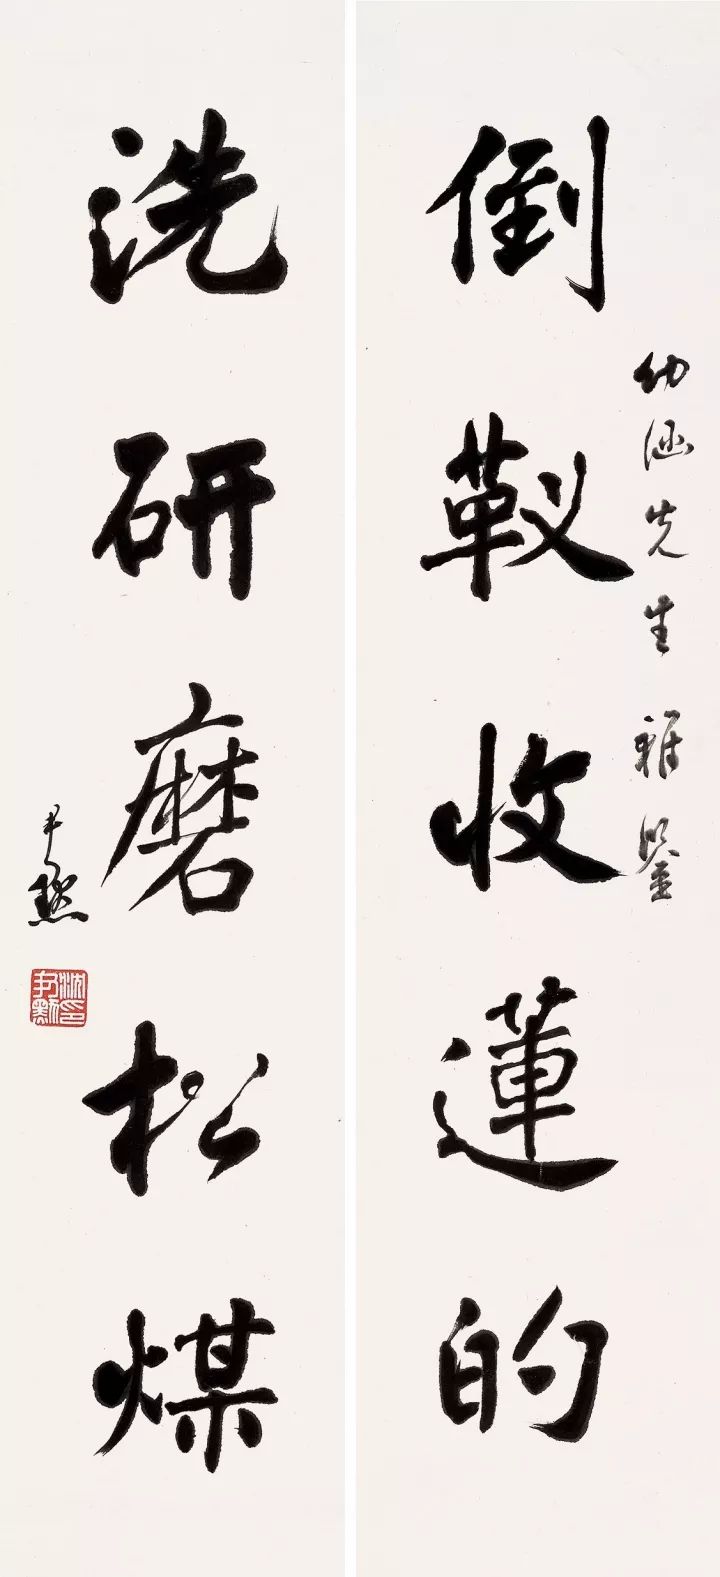 幼涵先生雅鑒
倒靫收蓮的
洗研磨松煤
尹默
沈印
尹默